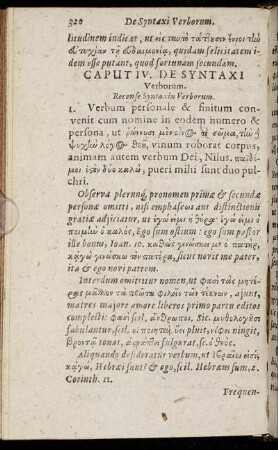 320 De Syntaxi Verborum.
litudinem indicat, ut εἰς ταυτὸ τάττουσιν ἔνιοι τὴν
εὐτυχίαν τῇ εὐδαιμονίᾳ, quidam felicitatem in
idem esse putant, quod fortunam secundam.
CAPUT IV. DE SYNTAXI
Verborum.
Recense Syntaxin Verborum.
1. Verbum personale & finitum con-
venit cum nomine in eodem numero &
persona, ut ῥώννυσι μὲν οἶνος τὸ σῶμα, τὴν δὲ
ψυχὴν λόγος θεοῦ, vinum roborat corpus,
animam autem verbum Dei, Nilus.
μοὶ δύο καλώ, pueri mihi sunt duo pul-
chri.
Observa plerunq; pronomen primæ & secundæ
personæ omitti, nisi emphaseως aut distinctionis
gratiâ adjiciatur, ut ἐγώ εἰμι ἡ θύρα· ἐγώ εἰμι ὁ
ποιμὴν ὁ καλός, Ego sum ostium: ego sum pastor
ille bonus, Ioan. 10. καθὼς γινώσκει με ὁ πατήρ,
κἀγὼ γινώσκω τὸν πατέρα, sicut novit me pater,
ita & ego novi patrem.
Interdum omittitur nomen, ut φασὶ τὰς μητέ-
ρας μᾶλλον τὰ πρῶτα φιλεῖν τῶν τέκνων, ajunt,
matres majore amore liberos primo partu editos
complecti: φασὶ scil. ἄνθρωποι. Sic. μυθολογοῦσι
fabulantur, scil. οἱ ποιηταί, ὕει pluit, νίφει ningit,
βροντᾷ tonat, ἀστράπτει fulgurat, sc. ὁ θεός.
Aliquando desideratur verbum, ut Ἑβραῖοί εἰσι;
κἀγώ, Hebræi sunt? & ego, scil. Hebræus sum, 2.
Corinth. 11.
Frequen-